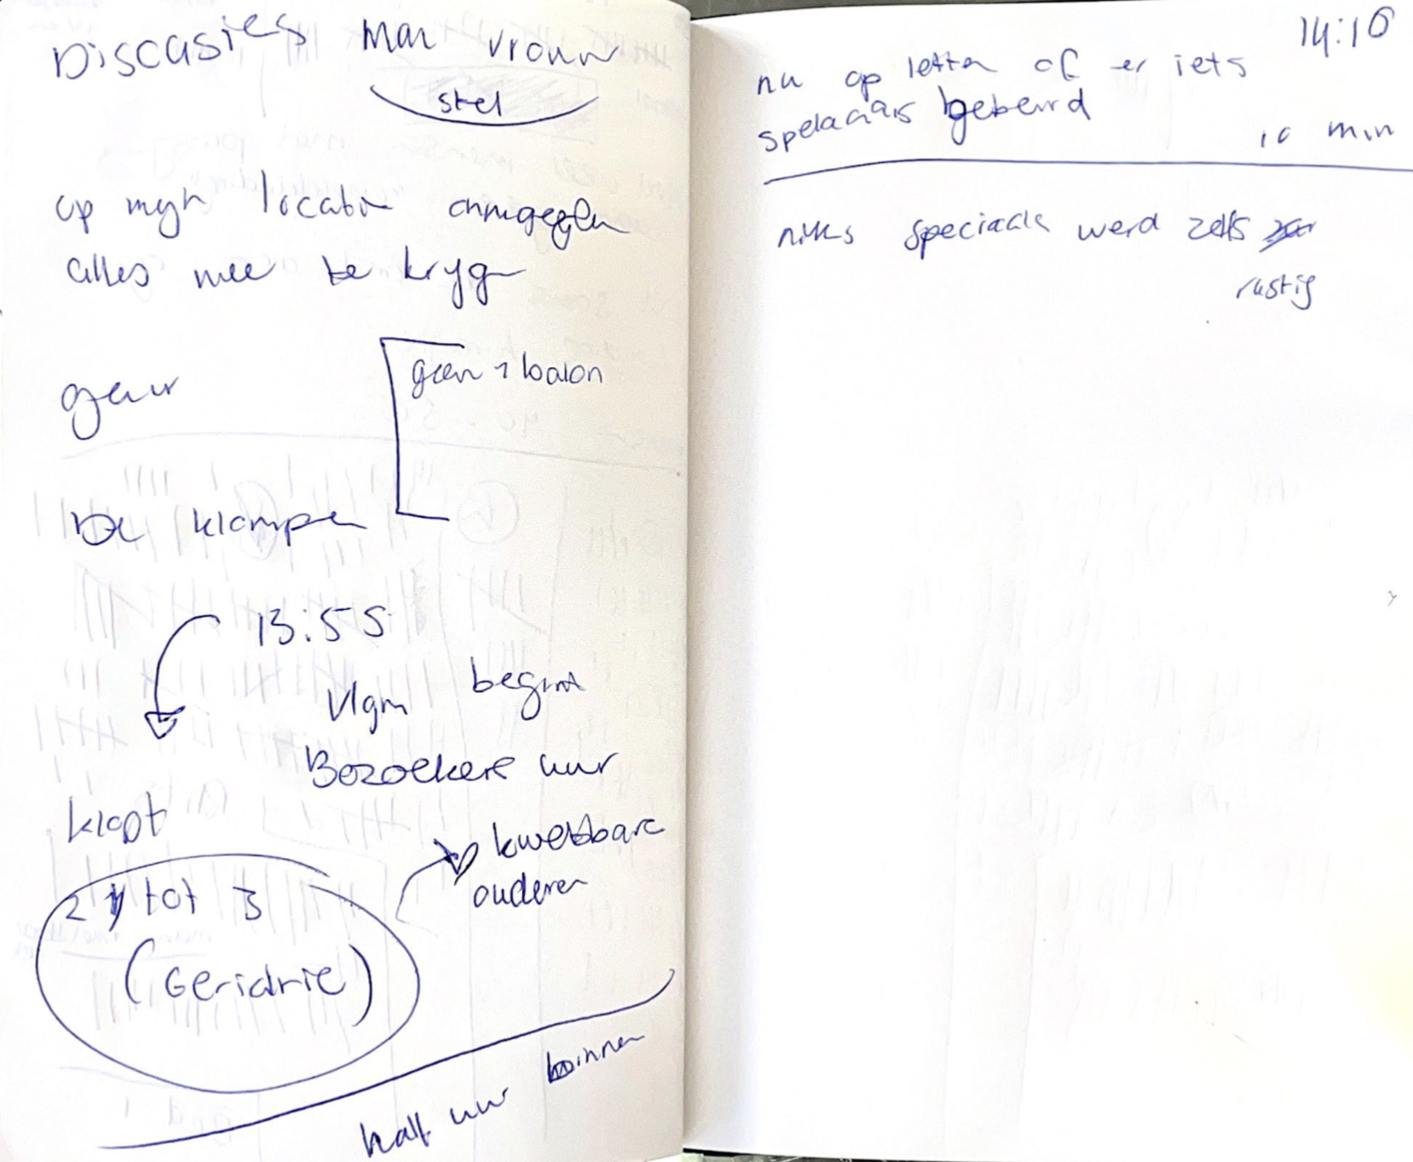 Discusies man vrouw
stel
op mijn locatie
alles mee te krijgn
geur
geen 1 balon
De klompen
13:55
begint
Bezoekers uur
klopt
kwetsbare
ouderen
2 tot 3
(Geriatrie)
half uur binnen
14:10
nu op letten of er iets
gebeurd
10 min
niks speciaals werd zelfs
rustig